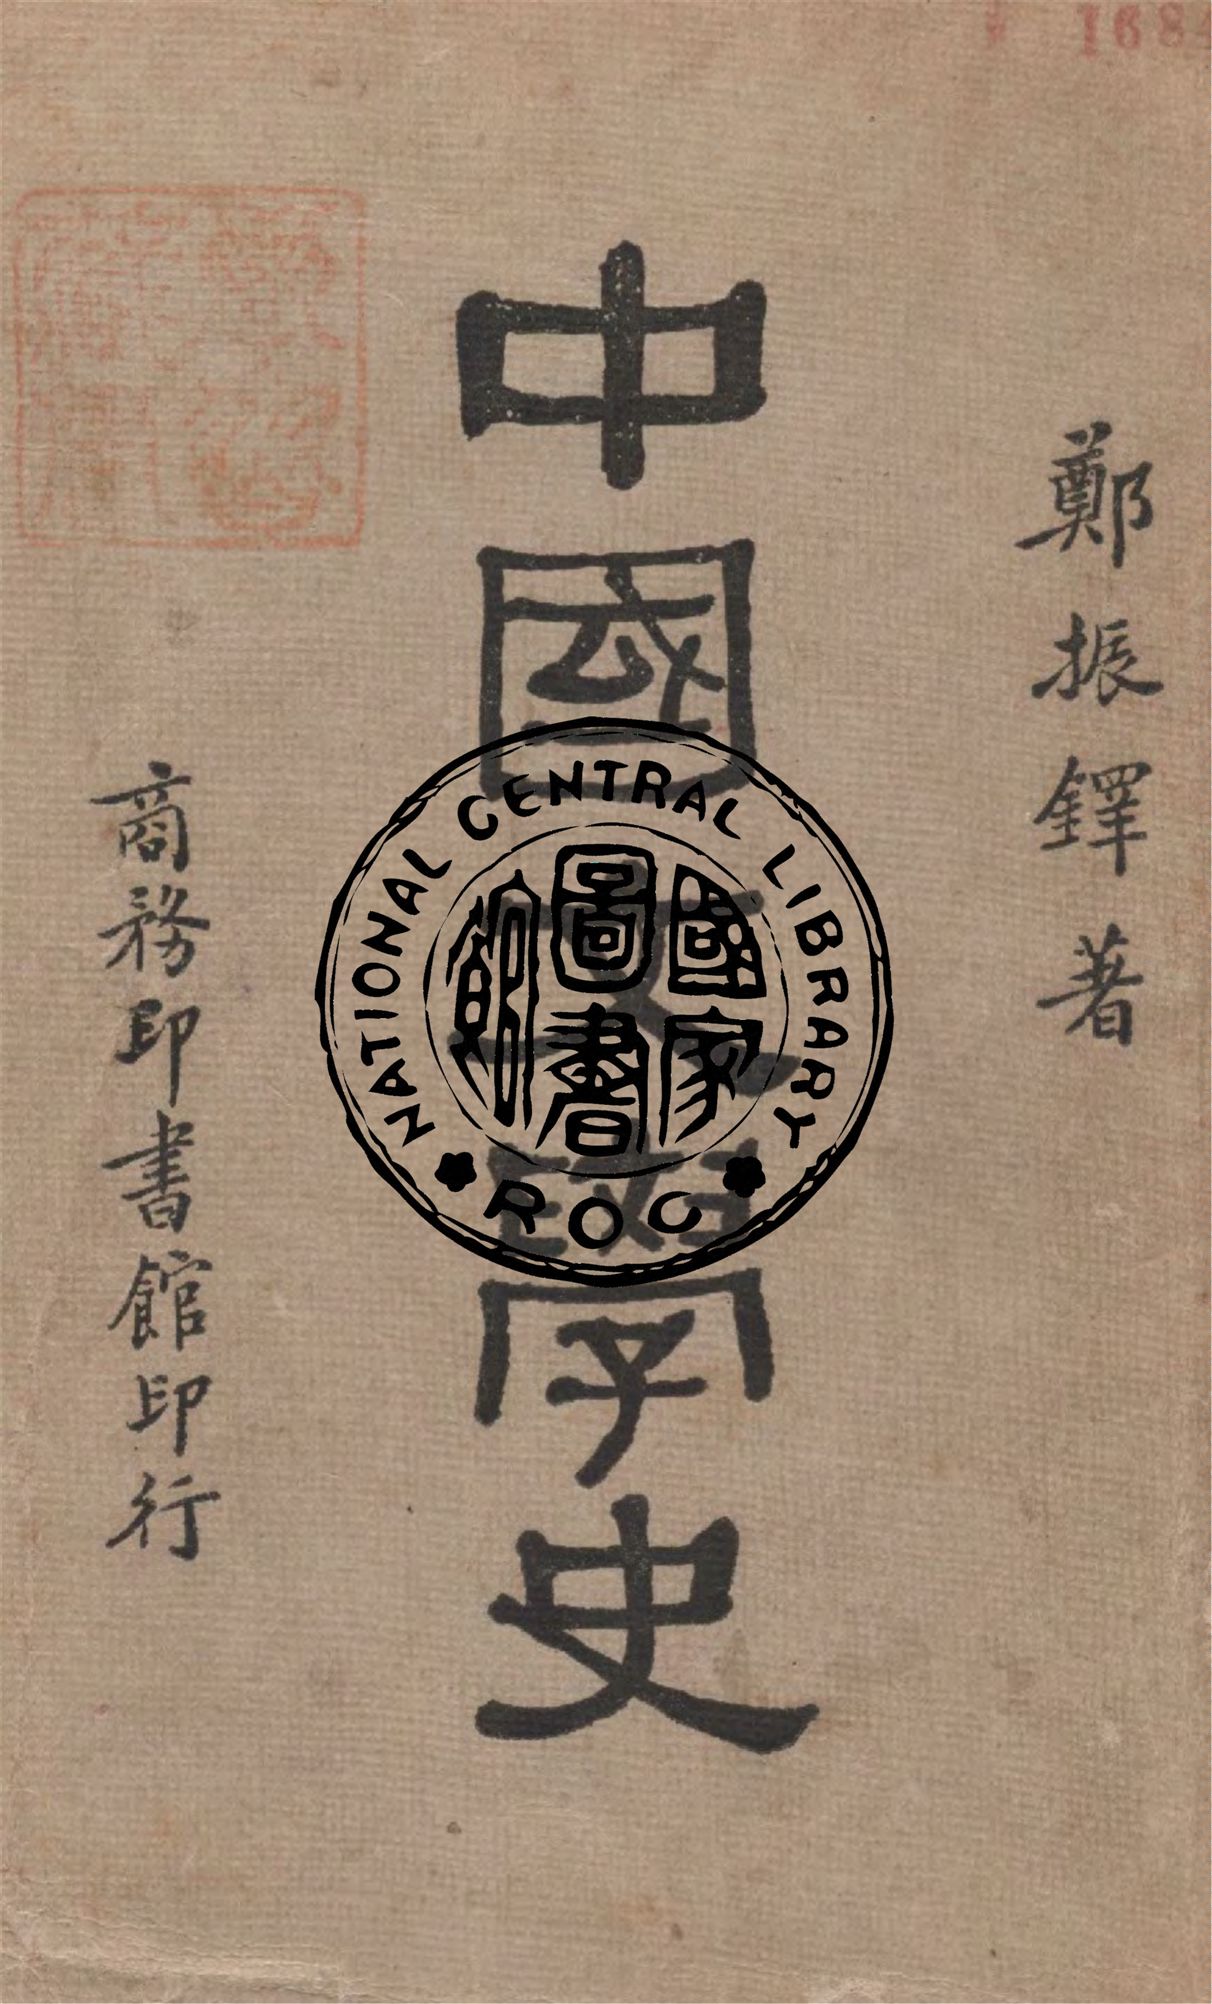 1684
鄭振鐸著
中國文學史
商務印書館印行
NATIONAL CENTRAL LIBRARY
國家
圖書
館
ROC